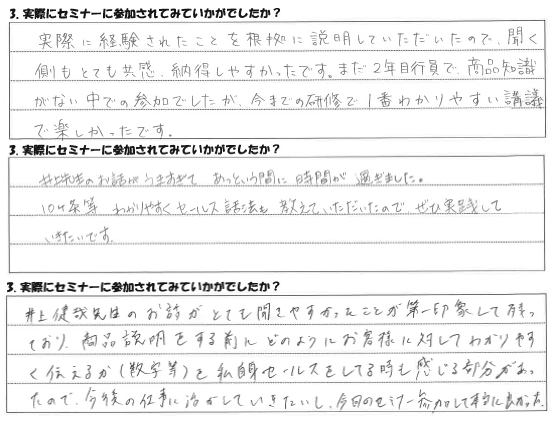 3. 実際にセミナーに参加されてみていかがでしたか？
実際に経験されたことを根拠に説明していただいたので、聞く
側もとても共感、納得しやすかったです。まだ2年目行員で、商品知識
がない中での参加でしたが、今までの研修で1番わかりやすい講議
で楽しかったです。
3. 実際にセミナーに参加されてみていかがでしたか？
井上先生のお話がうますぎて あっという間に時間が過ぎました。
10ヶ条等 わかりやすくセールス話法も教えていただいたので、ぜひ実践して
いきたいです。
3. 実際にセミナーに参加されてみていかがでしたか？
井上健哉先生のお話がとても聞きやすかったことが第一印象して残っ
ており、商品説明をする前にどのようにお客様に対してわかりやす
く伝えるか(数字等)を私自身セールスをしてる時も感じる部分があっ
たので、今後の仕事に活かしていきたいし、今日のセミナー参加して本当に良かった。